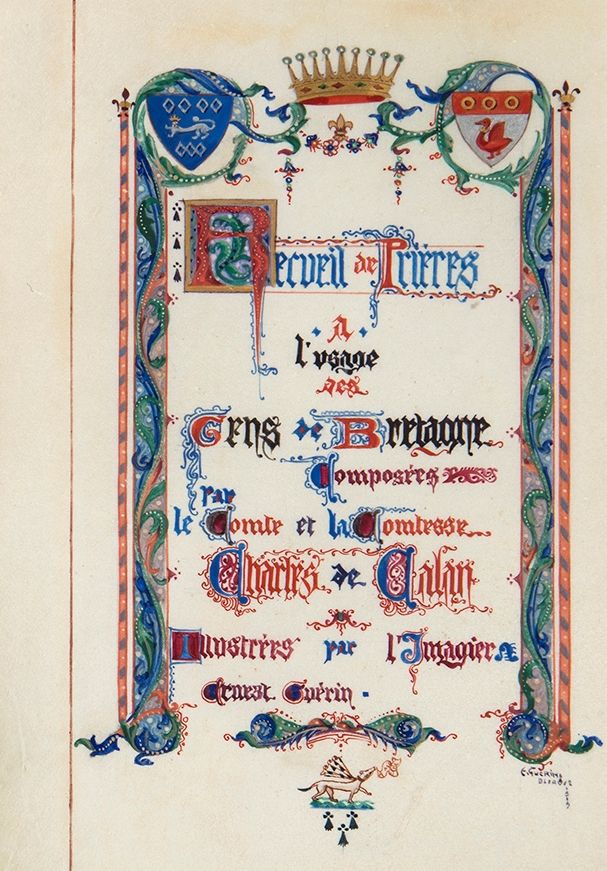 Recueil de Prières
A
l'usage
des
Gens de Bretagne
Composées
par
le Comte et la Comtesse
Charles de Calan
Illustrées par l'Imagier
Ernest Guérin
E. GUERIN